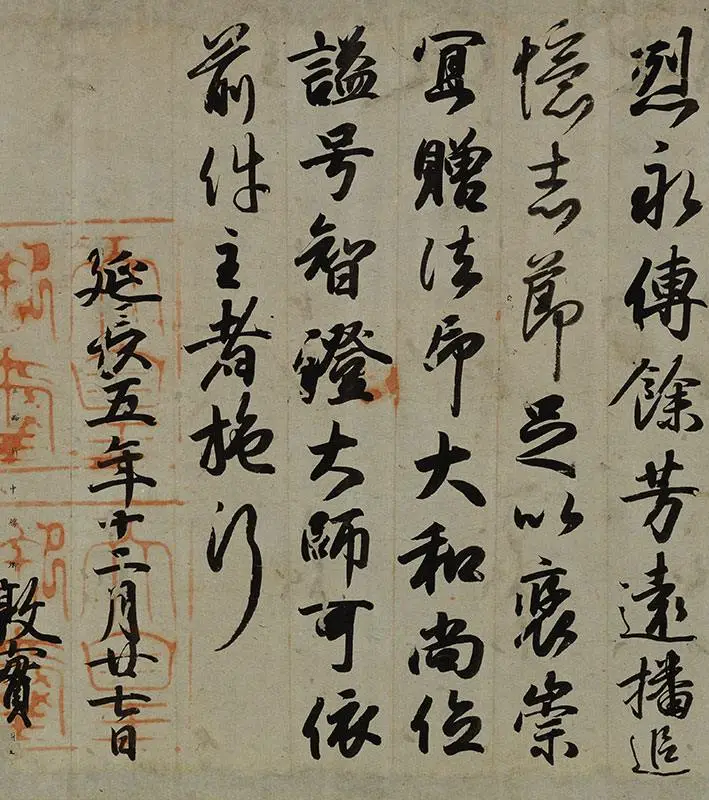 烈永傳餘芳遠播追
憶志節足以褒崇
冝贈法印大和尚位
謚号智證大師可依
前件主者施行
延長五年十二月廿七日
敦實